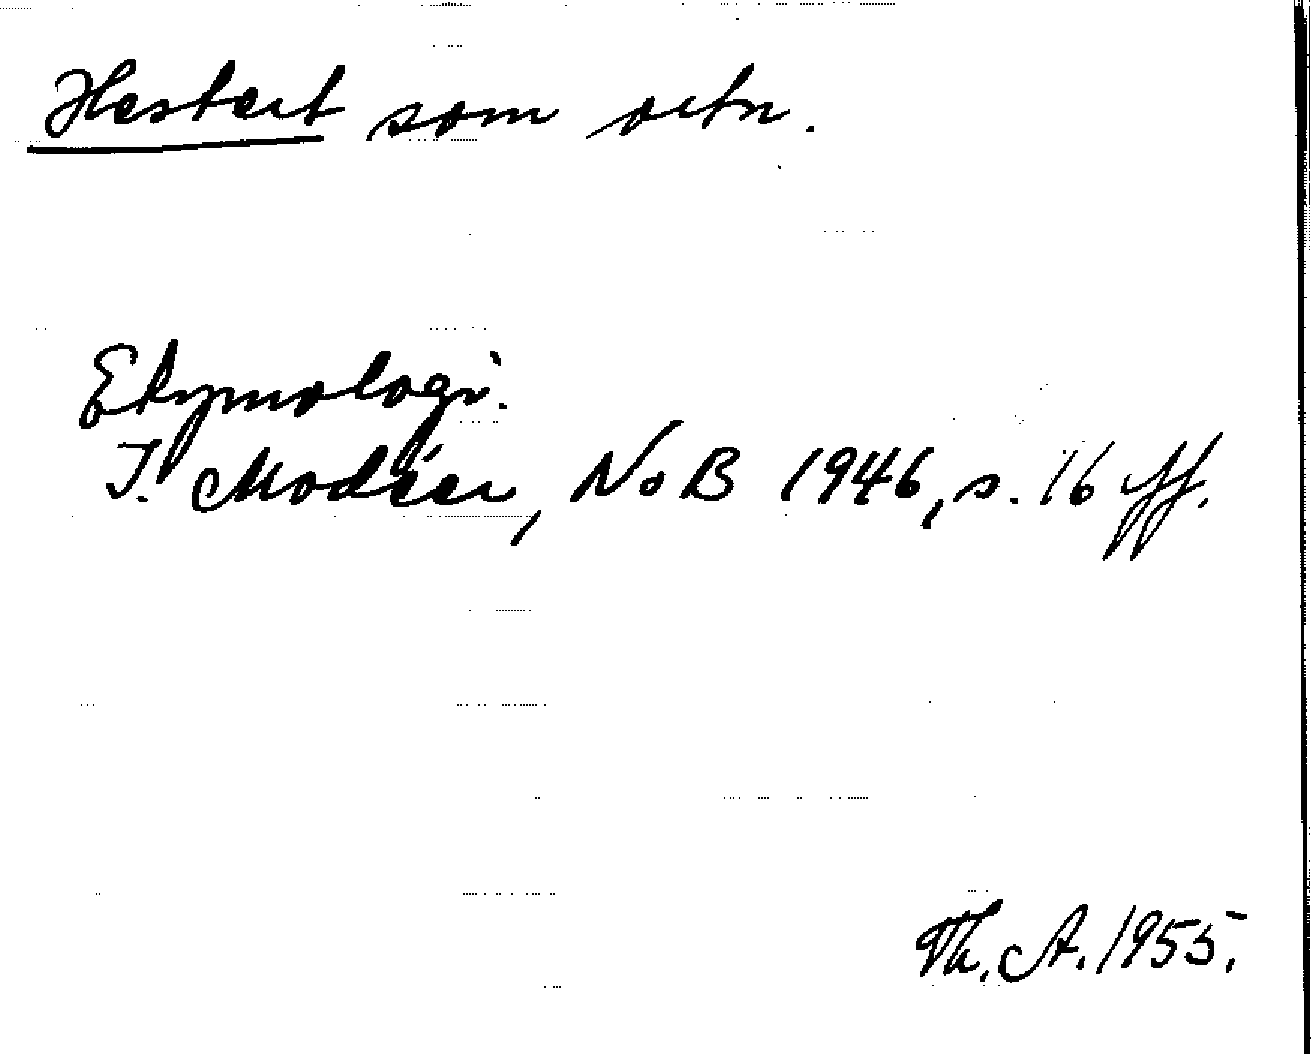 Hestert som ortn.
Etymologi.
I. Modéer, NoB 1946, s. 16 ff.
Th. A. 1955.